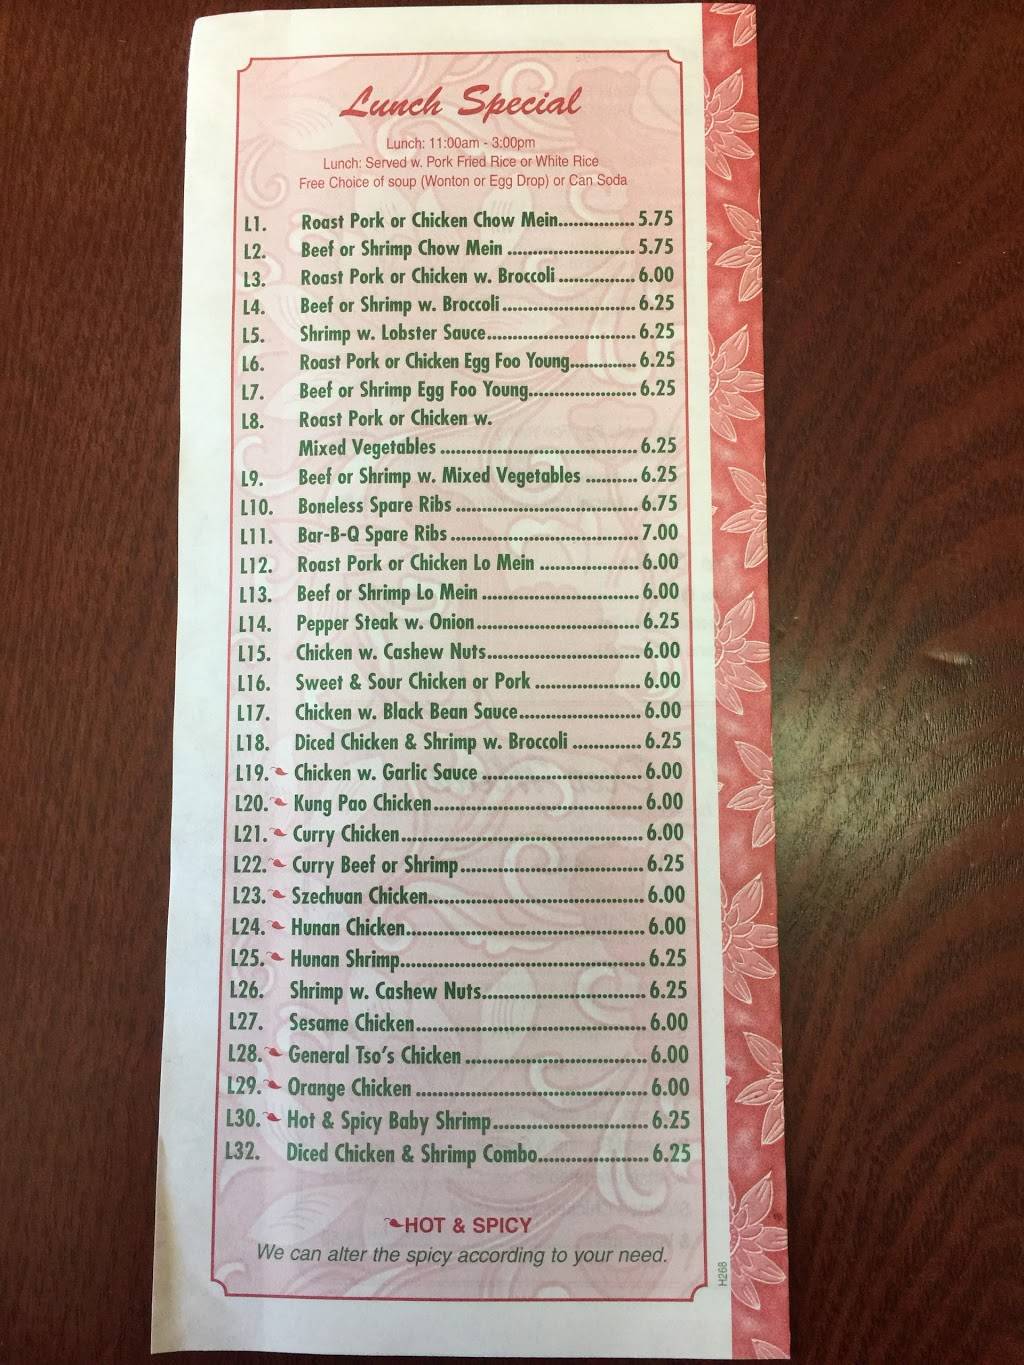 Lunch Special
Lunch: 11:00am - 3:00pm
Lunch: Served w. Pork Fried Rice or White Rice
Free Choice of soup (Wonton or Egg Drop) or Can Soda
L1. Roast Pork or Chicken Chow Mein............... 5.75
L2. Beef or Shrimp Chow Mein ......................... 5.75
L3. Roast Pork or Chicken w. Broccoli ............... 6.00
L4. Beef or Shrimp w. Broccoli.......................... 6.25
L5. Shrimp w. Lobster Sauce............................. 6.25
L6. Roast Pork or Chicken Egg Foo Young............. 6.25
L7. Beef or Shrimp Egg Foo Young..................... 6.25
L8. Roast Pork or Chicken w.
Mixed Vegetables ...................................... 6.25
L9. Beef or Shrimp w. Mixed Vegetables .......... 6.25
L10. Boneless Spare Ribs ................................... 6.75
L11. Bar-B-Q Spare Ribs .................................... 7.00
L12. Roast Pork or Chicken Lo Mein ................... 6.00
L13. Beef or Shrimp Lo Mein .............................. 6.00
L14. Pepper Steak w. Onion................................ 6.25
L15. Chicken w. Cashew Nuts.............................. 6.00
L16. Sweet & Sour Chicken or Pork .................... 6.00
L17. Chicken w. Black Bean Sauce....................... 6.00
L18. Diced Chicken & Shrimp w. Broccoli ............. 6.25
L19. Chicken w. Garlic Sauce .............................. 6.00
L20. Kung Pao Chicken....................................... 6.00
L21. Curry Chicken............................................. 6.00
L22. Curry Beef or Shrimp.................................. 6.25
L23. Szechuan Chicken........................................ 6.00
L24. Hunan Chicken............................................ 6.00
L25. Hunan Shrimp............................................. 6.25
L26. Shrimp w. Cashew Nuts............................... 6.25
L27. Sesame Chicken.......................................... 6.00
L28. General Tso's Chicken ................................. 6.00
L29. Orange Chicken .......................................... 6.00
L30. Hot & Spicy Baby Shrimp............................ 6.25
L32. Diced Chicken & Shrimp Combo.................... 6.25
HOT & SPICY
We can alter the spicy according to your need.
H268